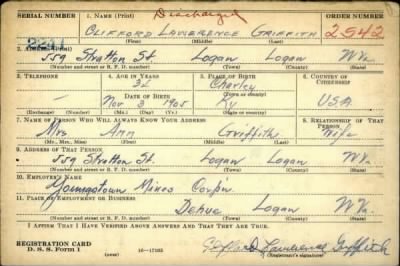 SERIAL NUMBER 1. NAME (Print) Discharged ORDER NUMBER
2241 CLIFFORD LAWERENCE GRIFFITH 2542
(First) (Middle) (Last)
2. ADDRESS (Print)
559 Stratton St. Logan Logan W Va.
(Number and street or R. F. D. number) (Town) (County) (State)
3. TELEPHONE 4. AGE IN YEARS 5. PLACE OF BIRTH 6. COUNTRY OF CITIZENSHIP
Charley
(Town or county)
DATE OF BIRTH
– Nov 3 1905 Ky U.S.A.
(Exchange) (Number) (Mo.) (Day) (Yr.) (State or country)
7. NAME OF PERSON WHO WILL ALWAYS KNOW YOUR ADDRESS 8. RELATIONSHIP OF THAT PERSON
Mrs Ann Griffith Wife
(Mr., Mrs., Miss) (First) (Middle) (Last)
9. ADDRESS OF THAT PERSON
559 Stratton St. Logan Logan W Va.
(Number and street or R. F. D. number) (Town) (County) (State)
10. EMPLOYER'S NAME
Youngstown Mines Corp'n.
11. PLACE OF EMPLOYMENT OR BUSINESS
Dehue Logan W Va.
(Number and street or R. F. D. number) (Town) (County) (State)
I AFFIRM THAT I HAVE VERIFIED ABOVE ANSWERS AND THAT THEY ARE TRUE.
REGISTRATION CARD
D. S. S. Form 1 16—17105 Clifford Lawerence Griffith
(Registrant's signature)